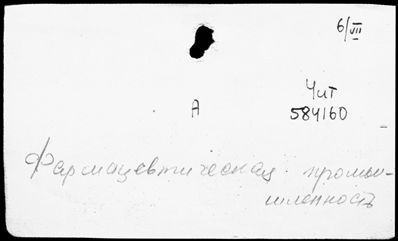 6/VII
Чит
А 584160
Фармацевтическая промы-
шленность